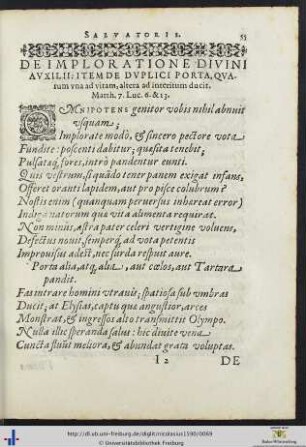 SALVATORIS. 55
DE IMPLORATIONE DIVINI
AVXILII: ITEM DE DVPLICI PORTA, QVA-
rum vna ad vitam, altera ad interitum ducit.
Matth. 7. Luc. 6. & 13.
OMNIPOTENS genitor vobis nihil abnuit
vsquam;
Implorate modò, & sincero pectore vota
Fundite: poscenti dabitur; quæsita tenebit;
Pulsataq́; fores, intrò pandentur eunti.
Quis vestrûm, si quãdo tener panem exigat infans,
Offeret oranti lapidem, aut pro pisce colubrum?
Nostis enim (quanquam peruersus inhæreat error)
Indiga natorum quæ vita alimenta requirat.
Non minùs, astra pater celeri vertigine voluens,
Defectus nouit, semperq́; ad vota petentis
Improuisus adest, nec surda respuit aure.
Porta alia, atq; alia, aut cœlos, aut Tartara
pandit.
Fas intrare homini vtrauis; spatiosa sub vmbras
Ducit; at Elysias, captu quæ angustior, arces
Monstrat, & ingressos alto transmittit Olympo.
Nulla illic speranda salus: hic diuite vena
Cuncta fluũt meliora, & abundat grata voluptas.
I 2 DE
http://dl.ub.uni-freiburg.de/diglit/nicolasius1590/0069
© Universitätsbibliothek Freiburg